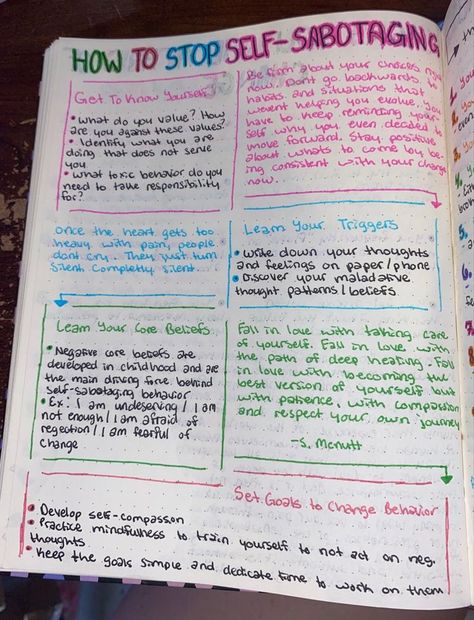 HOW TO STOP SELF-SABOTAGING
Get To Know Yourself
• What do you value? How
are you against these values?
• Identify what you are
doing that does not serve
you
• What toxic behavior do you
need to take responsibility
for?
Be firm about your choices
now. Dont go backwards
habits and situations that
werent helping you evolve. You
have to keep reminding your
self why you even decided to
move forward. Stay positive
about whats to come by be
ing consistent with your change
now.
Once the heart gets too
heavy with pain, people
dont cry. They just turn
silent. Completly silent...
Learn Your Triggers
• Write down your thoughts
and feelings on paper/phone
• Discover your maladative
thought patterns/beliefs
Learn Your Core Beliefs
• Negative core beliefs are
developed in childhood and are
the main driving force behind
self-sabotaging behavior
• Ex: I am undeserving/I am
not enough/I am afraid of
regection/I am fearful of
change
Fall in love with taking care
of yourself. Fall in love with
the path of deep healing. Fall
in love with becoming the
best version of yourself but
with patience, with compassion
and respect your own journey
-S. Mcnutt
Set Goals to Change Behavior
• Develop self-compassion
• Practice mindfulness to train yourself to not act on neg.
thoughts
• Keep the goals simple and dedicate time to work on them